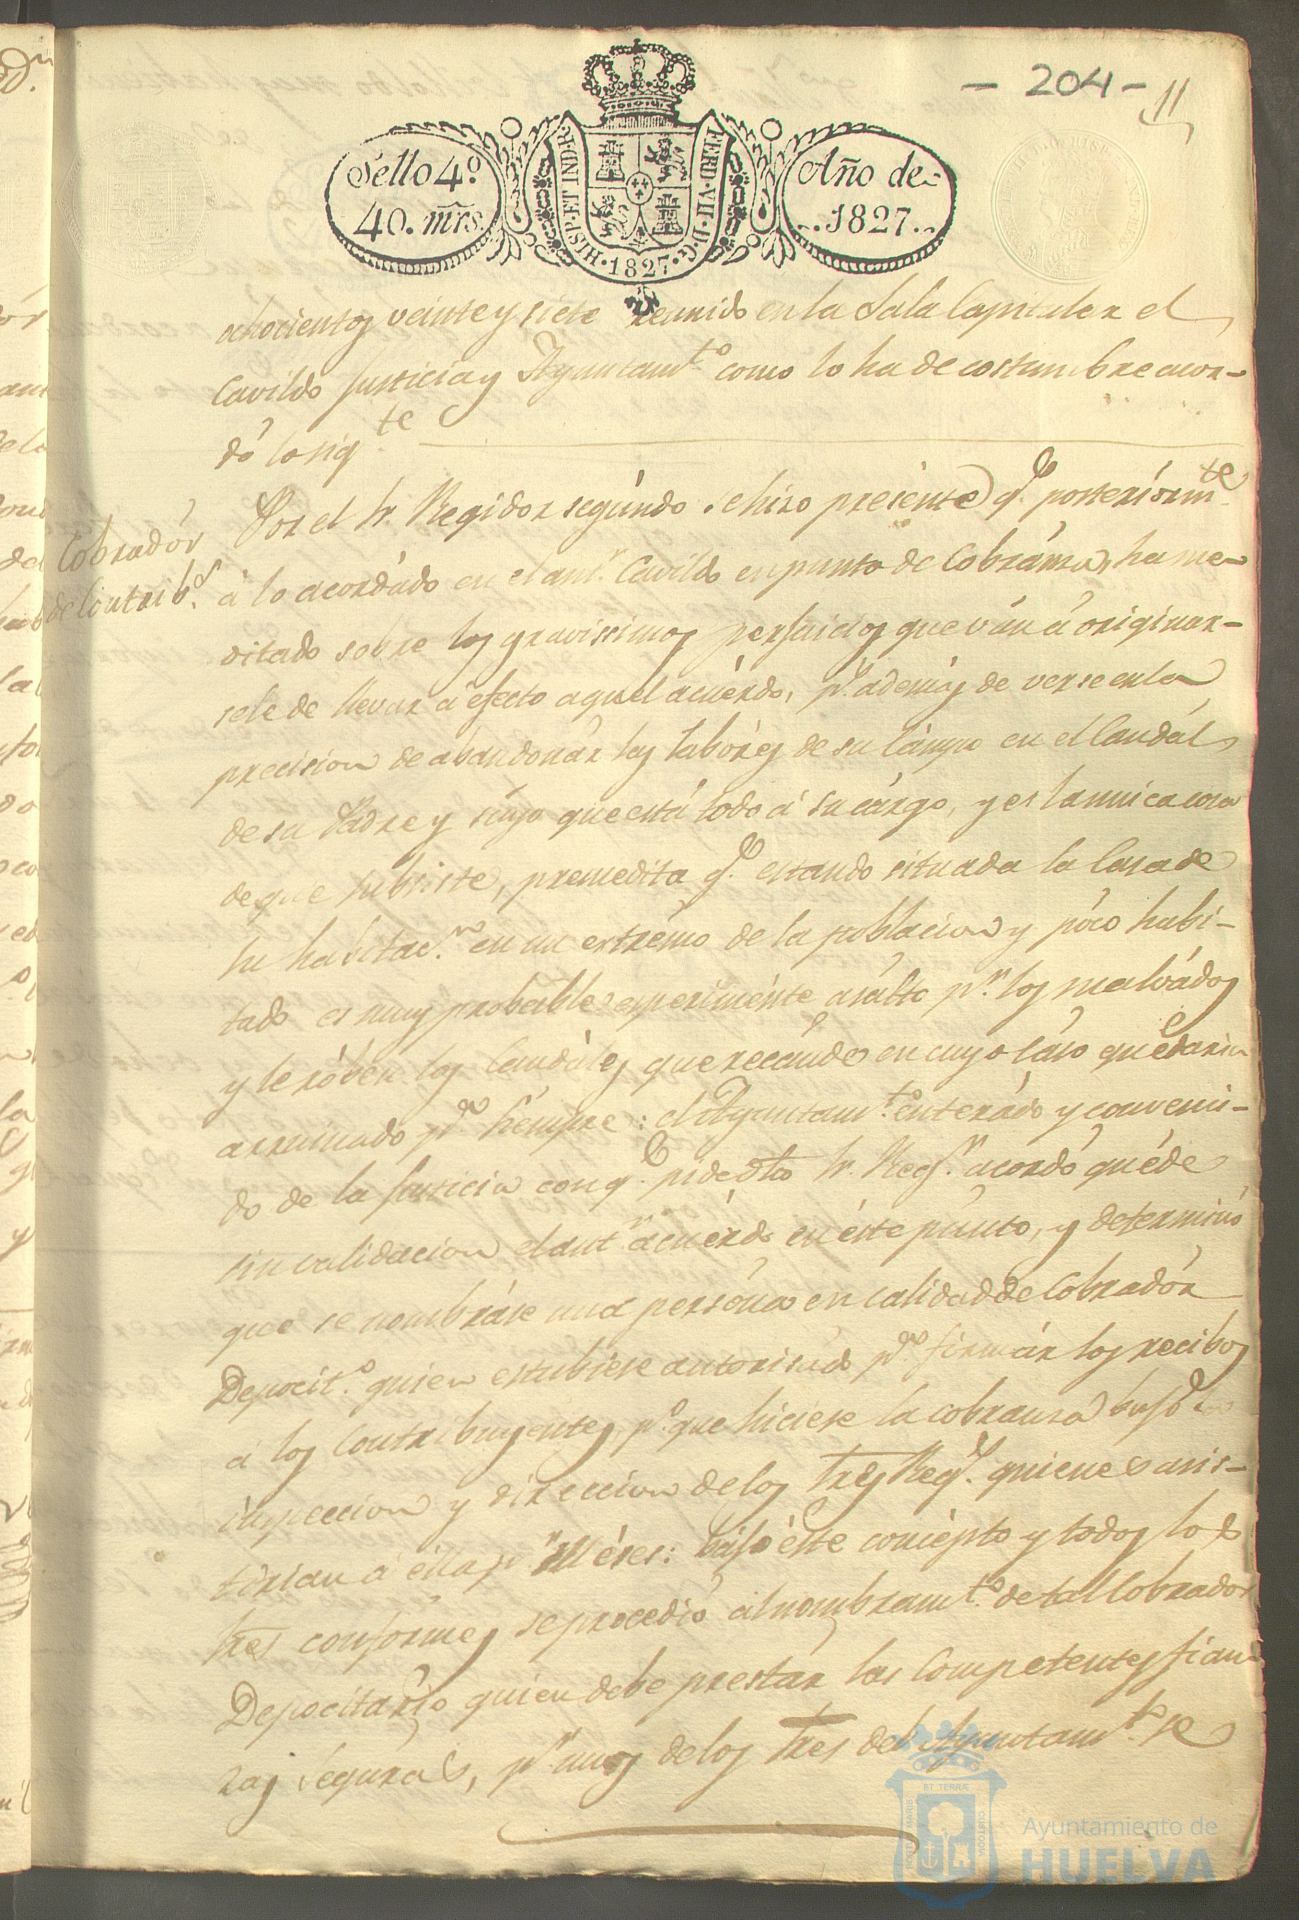 - 204 -
11
Sello 4º
40. mrs.
HISP. ET IND. R.
FERD. VII. D. G.
1827
Año de
1827.
ochocientos veinte y siete reunido en la Sala Capitular el
Cavildo Justicia y Ayuntamto como lo ha de costumbre acor-
dó lo sigte
Cobradór
de Contribs
Por el Sr Regidor segúndo se hizo presente qe posteriórmte
á lo acordádo en el antr Cavildo en punto de Cobránza, ha me
ditado sobre los gravissimos perjuicios que ván á originar-
sele de llevar á efecto aquel acuérdo, pr además de verse en la
precision de abandonár las labóres de su cámpo en el Caudál
de su Padre y súyo que está todo á su cárgo, y es la unica cosa
de que subsiste, premedita qe estando situada la Casa de
su habitacn en un estrémo de la poblacion y póco habi-
tado es muy probable esperiménte asálto pr los malvádos
y le róben los Caudáles que recaude en cuyo cáso quedaria
arruinado pa siempre: el Ayuntamto enterádo y conveni-
do de la Justicia con qe pide dho Sr Regr acordó quéde
sin validacion el antr acuérdo en éste púnto, y determinó
que se nombráse una persóna en calidad de Cobradór
Depocito quien estubiese autorisado pa firmár los recibos
á los Contribuyentes, po que hiciese la cobransa bajo la
inspeccion y direccion de los tres Regs quienes asis-
tirian á ella pr Méses: bájo éste concépto y todos los
Sres confórmes se procedió al nombramto de tal Cobrador
Depocitário quien debe prestár las Competentes fian
zas seguras, pr unos de los Sres del Ayuntamto se
Ayuntamiento de
HUELVA